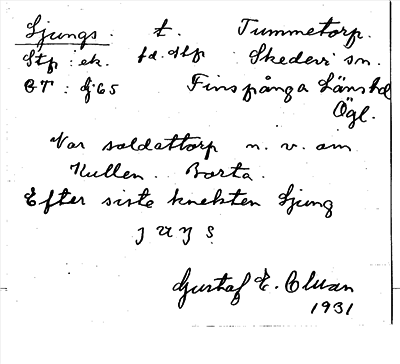 Ljungs. t. Tummetorp.
Stp: ek. fd. stp Skedevi sn.
GT: fj 65 Finspånga Länshd
Ögl.
Var soldattorp n. v. om
Kullen. Borta.
Efter siste knekten Ljung
Gustaf E.
1931